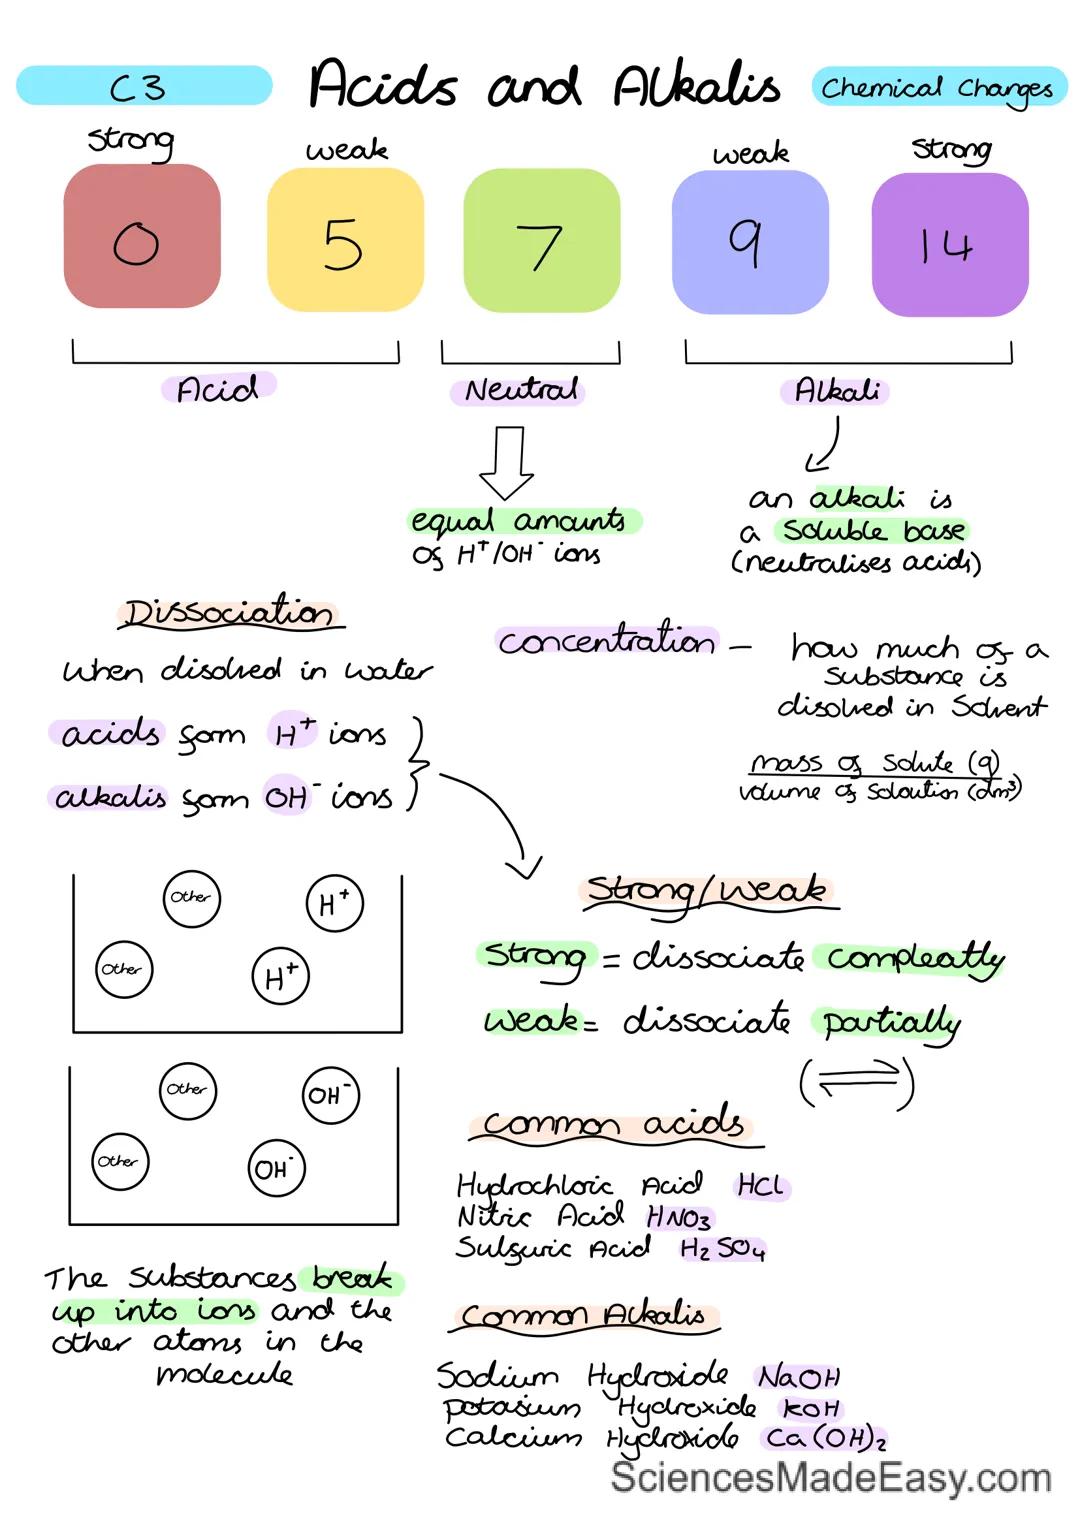 C3
Acids and Alkalis
Chemical Changes
strong
weak
weak
strong
0
5
7
9
14
Acid
Neutral
Alkali
equal amounts
of H⁺/OH⁻ ions
an alkali is
a soluble base
(neutralises acids)
Dissociation
when disolved in water
acids form H⁺ ions
alkalis form OH⁻ ions
concentration – how much of a
substance is
disolved in solvent
mass of solute (g)
volume of soloution (dm³)
Other
H⁺
Other
H⁺
Other
OH⁻
Other
OH⁻
The substances break
up into ions and the
other atoms in the
molecule
Strong/weak
Strong = dissociate compleatly
weak = dissociate partially
(⇌)
Common acids
Hydrochloric Acid HCl
Nitric Acid HNO₃
Sulfuric Acid H₂SO₄
Common Alkalis
Sodium Hydroxide NaOH
potasium Hydroxide KOH
Calcium Hydroxide Ca(OH)₂
SciencesMadeEasy.com